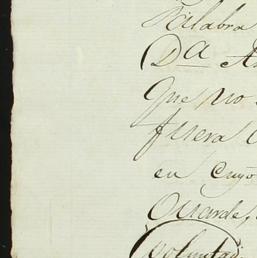 Palabra
Dª A
Que no
fuera
en cuyo
Guarde,
voluntad